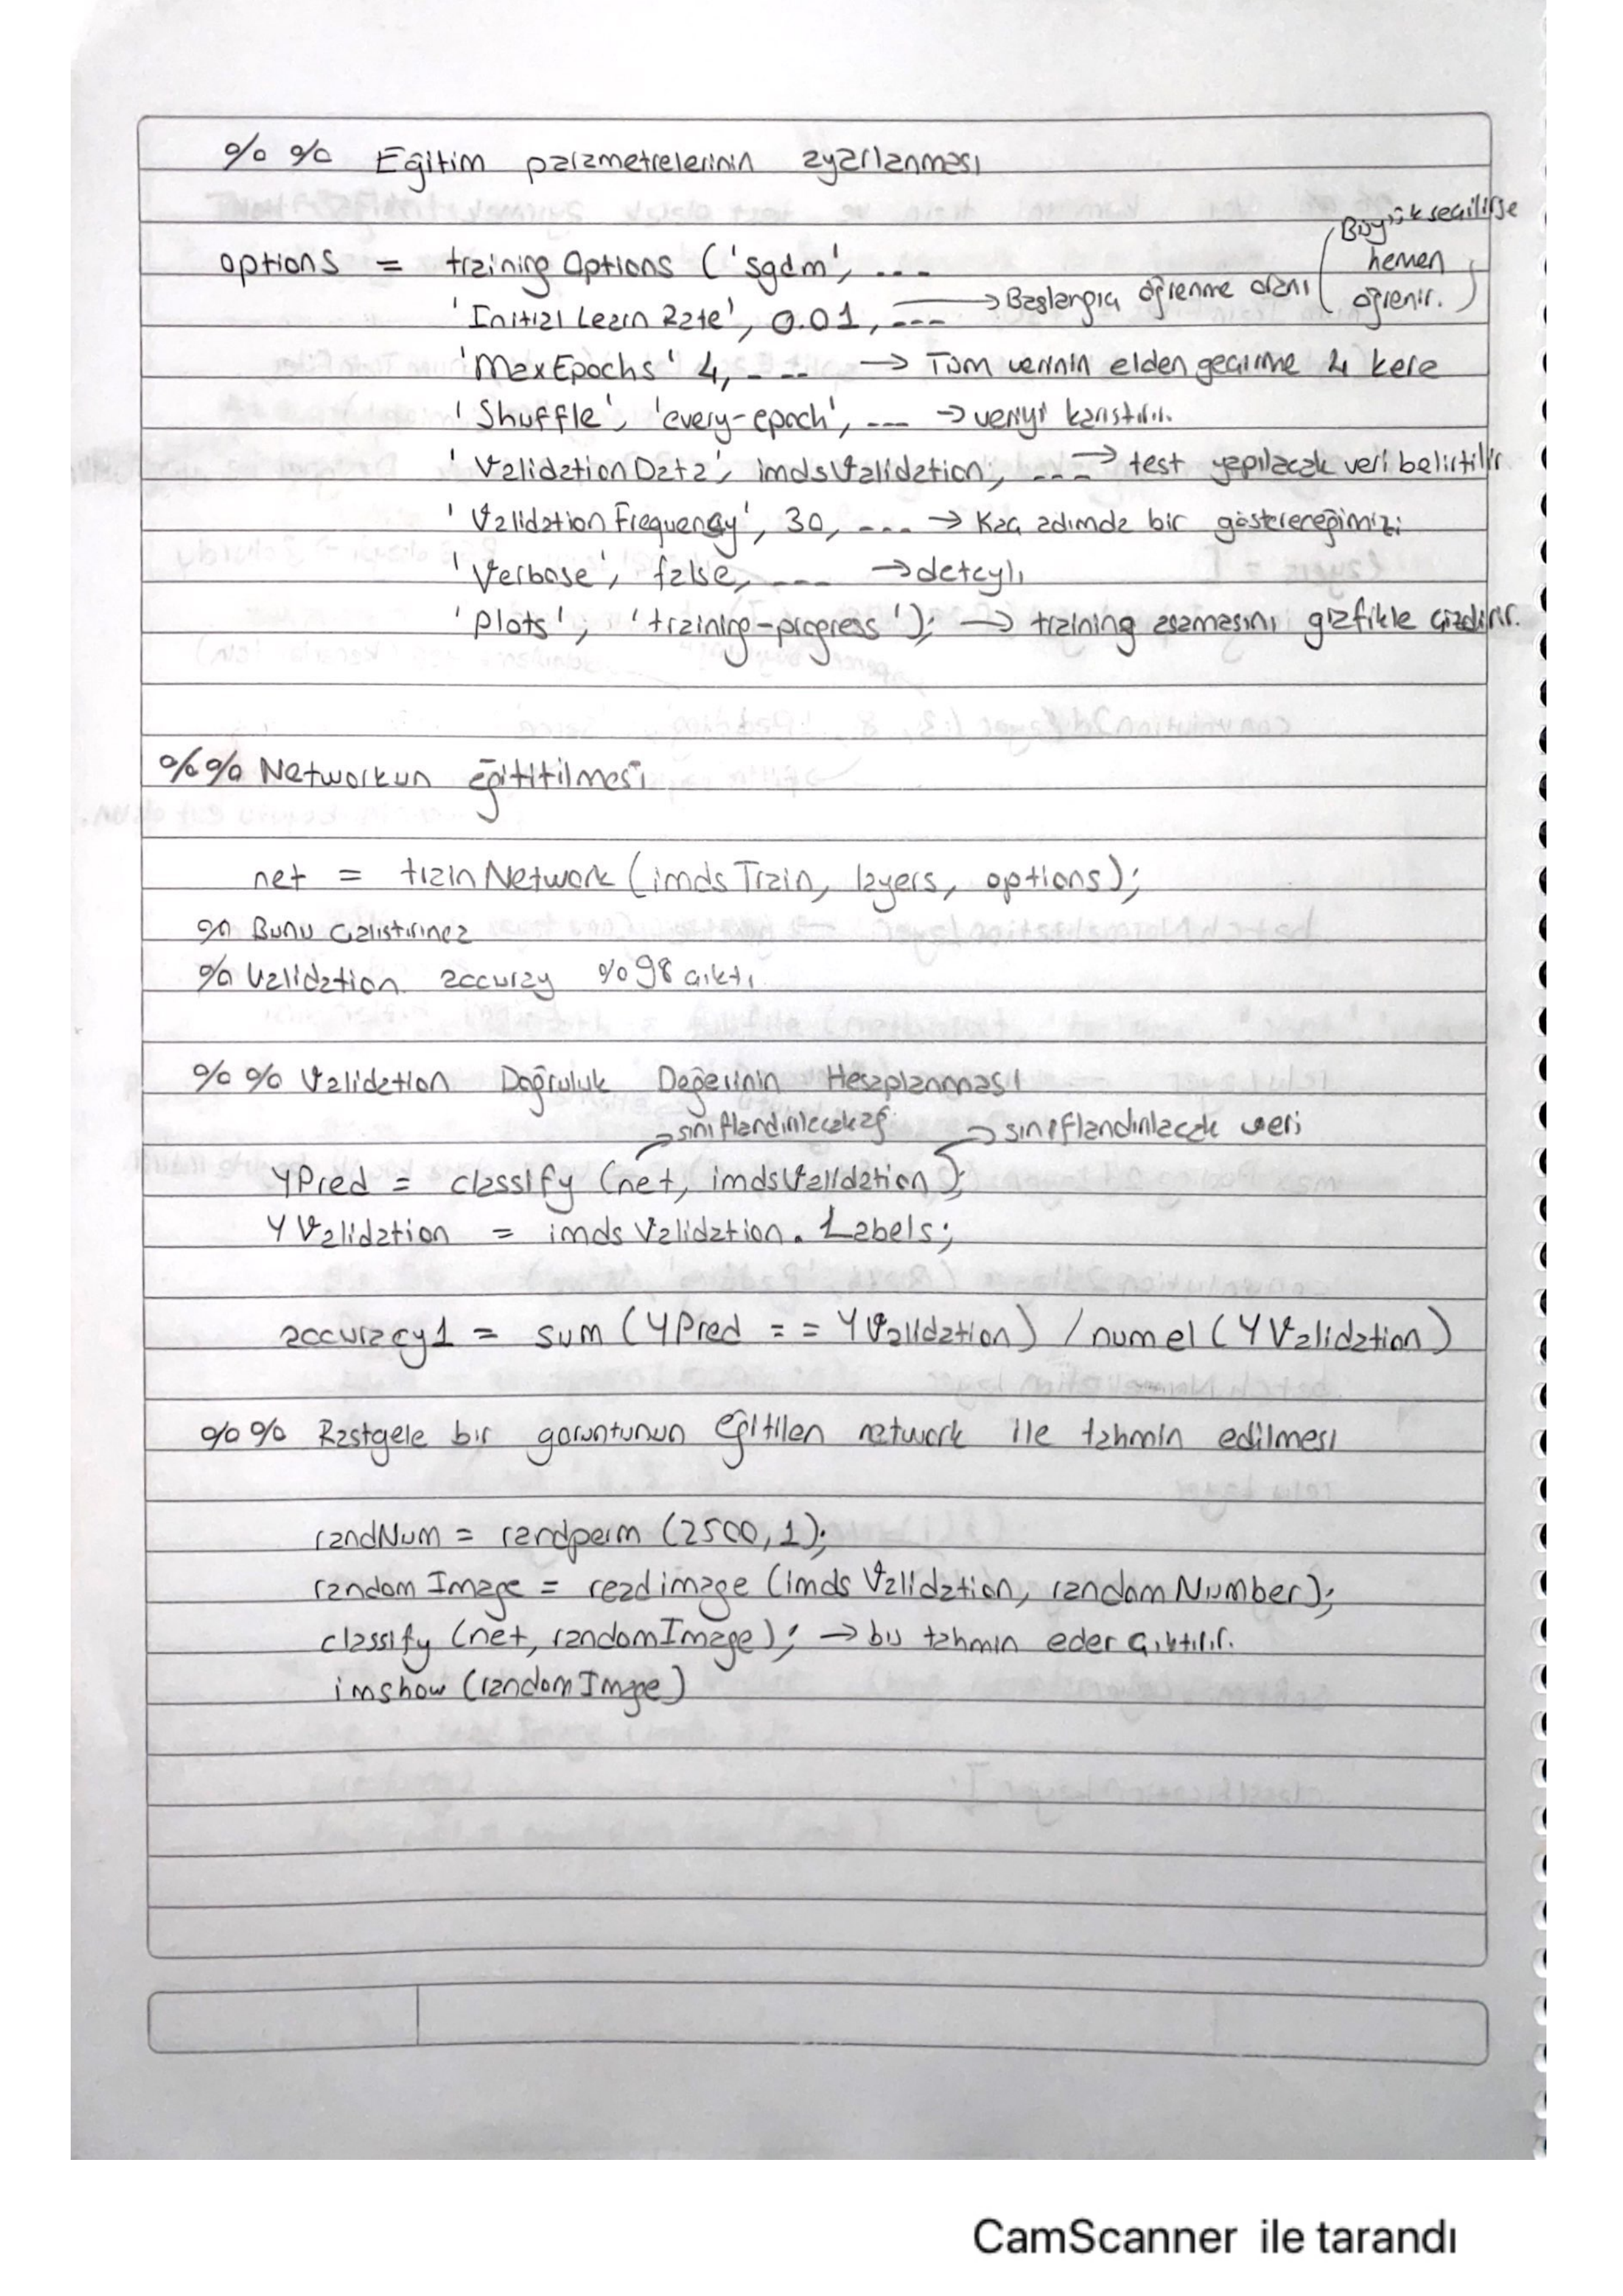 %% Eğitim parametrelerinin ayarlanması
options = trainingOptions ('sgdm', ...
'Initial Learn Rate', 0.01, --- → Başlangıç öğrenme oranı (Büyük seçilirse
hemen
öğrenir.)
'MaxEpochs' 4, - -- → Tüm verinin elden geçirme 4 kere
'Shuffle', 'every-epoch', --- → veriyi karıştırır.
'ValidationData', imdsValidation, --- → test yapılacak veri belirtilir
'Validation Frequency', 30, --- → Kaç adımda bir göstereceğimizi
'Verbose', false, --- → detaylı
'Plots', 'training-progress'); → training aşamasını grafikle çizdirir.
%% Networkun eğititilmesi
net = trainNetwork (imdsTrain, layers, options);
% Bunu çalıştırınca
% Validation accuray %98 çıktı
%% Validation Doğruluk Değerinin Hesaplanması
→ sınıflandırılacak ağ → sınıflandırılacak veri
YPred = classify (net, imdsValidation);
YValidation = imdsValidation.Labels;
accuracy1 = sum (YPred == YValidation) / numel (YValidation)
%% Rastgele bir goruntunun eğitilen network ile tahmin edilmesi
randNum = randperm (2500, 1);
random Image = readimage (imds Validation, random Number);
classify (net, randomImage); → bu tahmin eder çıktılır.
imshow (randomImage)
CamScanner ile tarandı